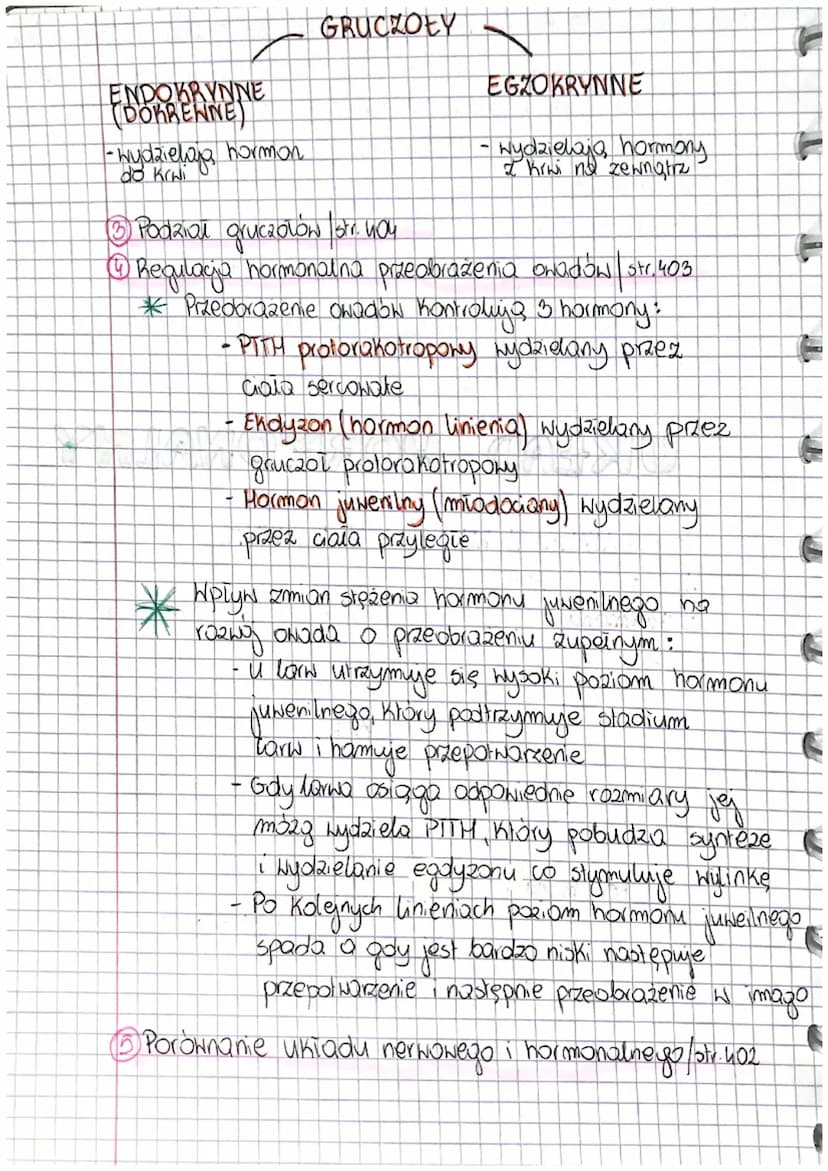 GRUCZOŁY
ENDOKRYNNE
(DOKREWNE)
- wydzielają hormon
do krwi
EGZOKRYNNE
- wydzielają hormony
z krwi na zewnątrz
③ Podział gruczołów | str. 404
④ Regulacja hormonalna przeobrażenia owadów | str. 403
* Przeobrażenie owadów kontrolują 3 hormony:
- PTTH protorakotropowy wydzielany przez
ciała sercowate
- Ekdyzon (hormon linienia) wydzielany przez
gruczoł protorakotropowy
- Hormon juwenilny (młodociany) wydzielany
przez ciała przyległe
* Wpływ zmian stężenia hormonu juwenilnego na
rozwój owada o przeobrażeniu zupełnym:
- U larw utrzymuje się wysoki poziom hormonu
juwenilnego, który podtrzymuje stadium
larw i hamuje przepotwarzenie
- Gdy larwa osiąga odpowiednie rozmiary jej
mózg wydziela PTTH, który pobudza synteze
i wydzielanie egdyzonu co stymuluje wylinkę
- Po kolejnych linieniach poziom hormonu juweilnego
spada a gdy jest bardzo niski następuje
przepotwarzenie i następnie przeobrażenie w imago
⑤ Porównanie układu nerwowego i hormonalnego/str. 402